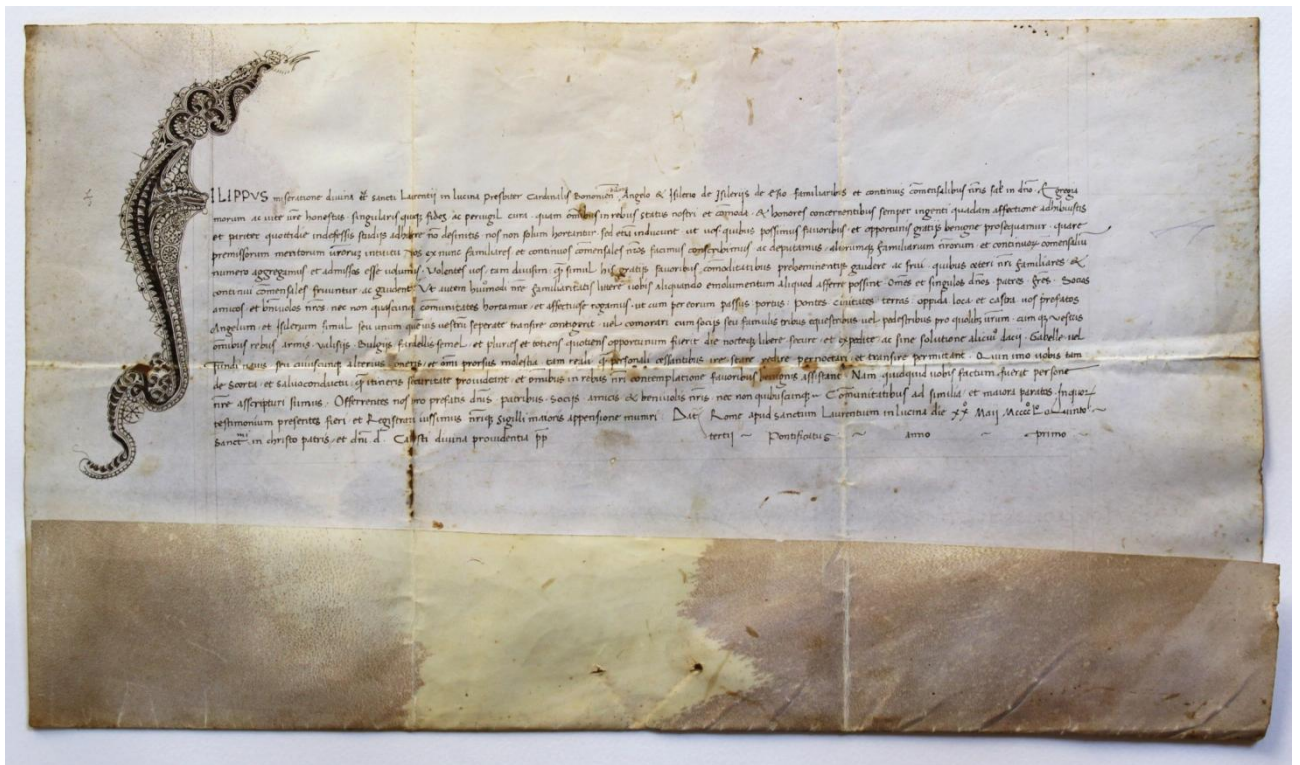 ILIPPVS miseratione divina tt̄ sancti Laurentij in lucina presbiter Cardinalis Bononien̄ Angelo & Isilerio de Isilerijs de familiaribus et continuis com̄ensalibus nr̄is sal̄t in dn̄o. Egregia
morum ac vite vr̄e honestas. singularis fides ac pervigil cura. quam om̄ibus in rebus status nostri et com̄oda. & honores concernentibus semper ingenti quadam affectione adhibuistis
et pariter quottidie indefessis studijs adhibere nō desinitis nos non solum hortantur sed etiā inducunt ut vos quibus possimus favoribus et opportunis gratijs benigne prosequamur. quare
premissorum meritorum vr̄orum intuitu vos ex nunc familiares et continuos com̄ensales nr̄os facimus conscribimus ac deputamus. aliorumq̨ familiarium nr̄orum. et continuoꝝ com̄ensaliū
numero aggregamus et admissos esse volumus. Volentes vos, tam divisim, q̄ simul his gratijs favoribus com̄oditatibus preheminentijs gaudere ac frui. quibus ceteri nr̄i familiares &
continui com̄ensales fruuntur ac gaudent. Ut autem huiusmodi nr̄e familiaritatis litere vobis aliquando emolumentum aliquod afferre possint. Om̄es et singulos dn̄os. patres fr̄es. Socios
amicos et benivolos nr̄os. nec non quascunq̨ comunitates hortamur. et affectuose rogamus. ut cum per eorum passus portus. Pontes civitates terras. oppida loca. et castra vos prefatos
Angelum. et Isilerum simul seu unum quemvis vestrū seperate transire contigerit. vel comorari cum socijs seu famulis tribus equestribus vel pedestribus pro quolibꝫ vr̄um. cumq̨ vestris
om̄ibus rebus armis. valisijs. Bulgijs fardellis semel. et plures et totiens quotiens opportunum fuerit die nocteq̨ libere secure. et expedite ac sine solutione alicuiꝰ dacij. Gabelle vel
fundi navis seu cuiuscunq̨ alterius oneris et om̄i prorsus molestia tam reali q̄ personali cessantibus ire stare redire pernoctari et transire permittant. Quin imo vobis tam
de Scorta. et salvoconductu. q̄ itineris securitate provideant. et om̄ibus in rebus nr̄i contemplatione favoribus benignis assistant. Nam quidquid vobis factum fuerit persone
nr̄e asscripturi sumus. Offerentes nos pro prefatis dn̄is. patribus. socijs amicis & benivolis nr̄is. nec non quibuscunq̨ Comunitatibus ad similia. et maiora paratos. Inquorꝫ
testimonium presentes fieri et Registrari iussimus nr̄iq̨ sigilli maioris appensione muniri. Dat̄ Rome apud sanctum Laurentium in lucina die xxº Maij Mccccº Lº Quinto
Sanctmi in christo patris. et dn̄i dn̄i Calisti divina providentia pp̄ tertij Pontificatus anno primo